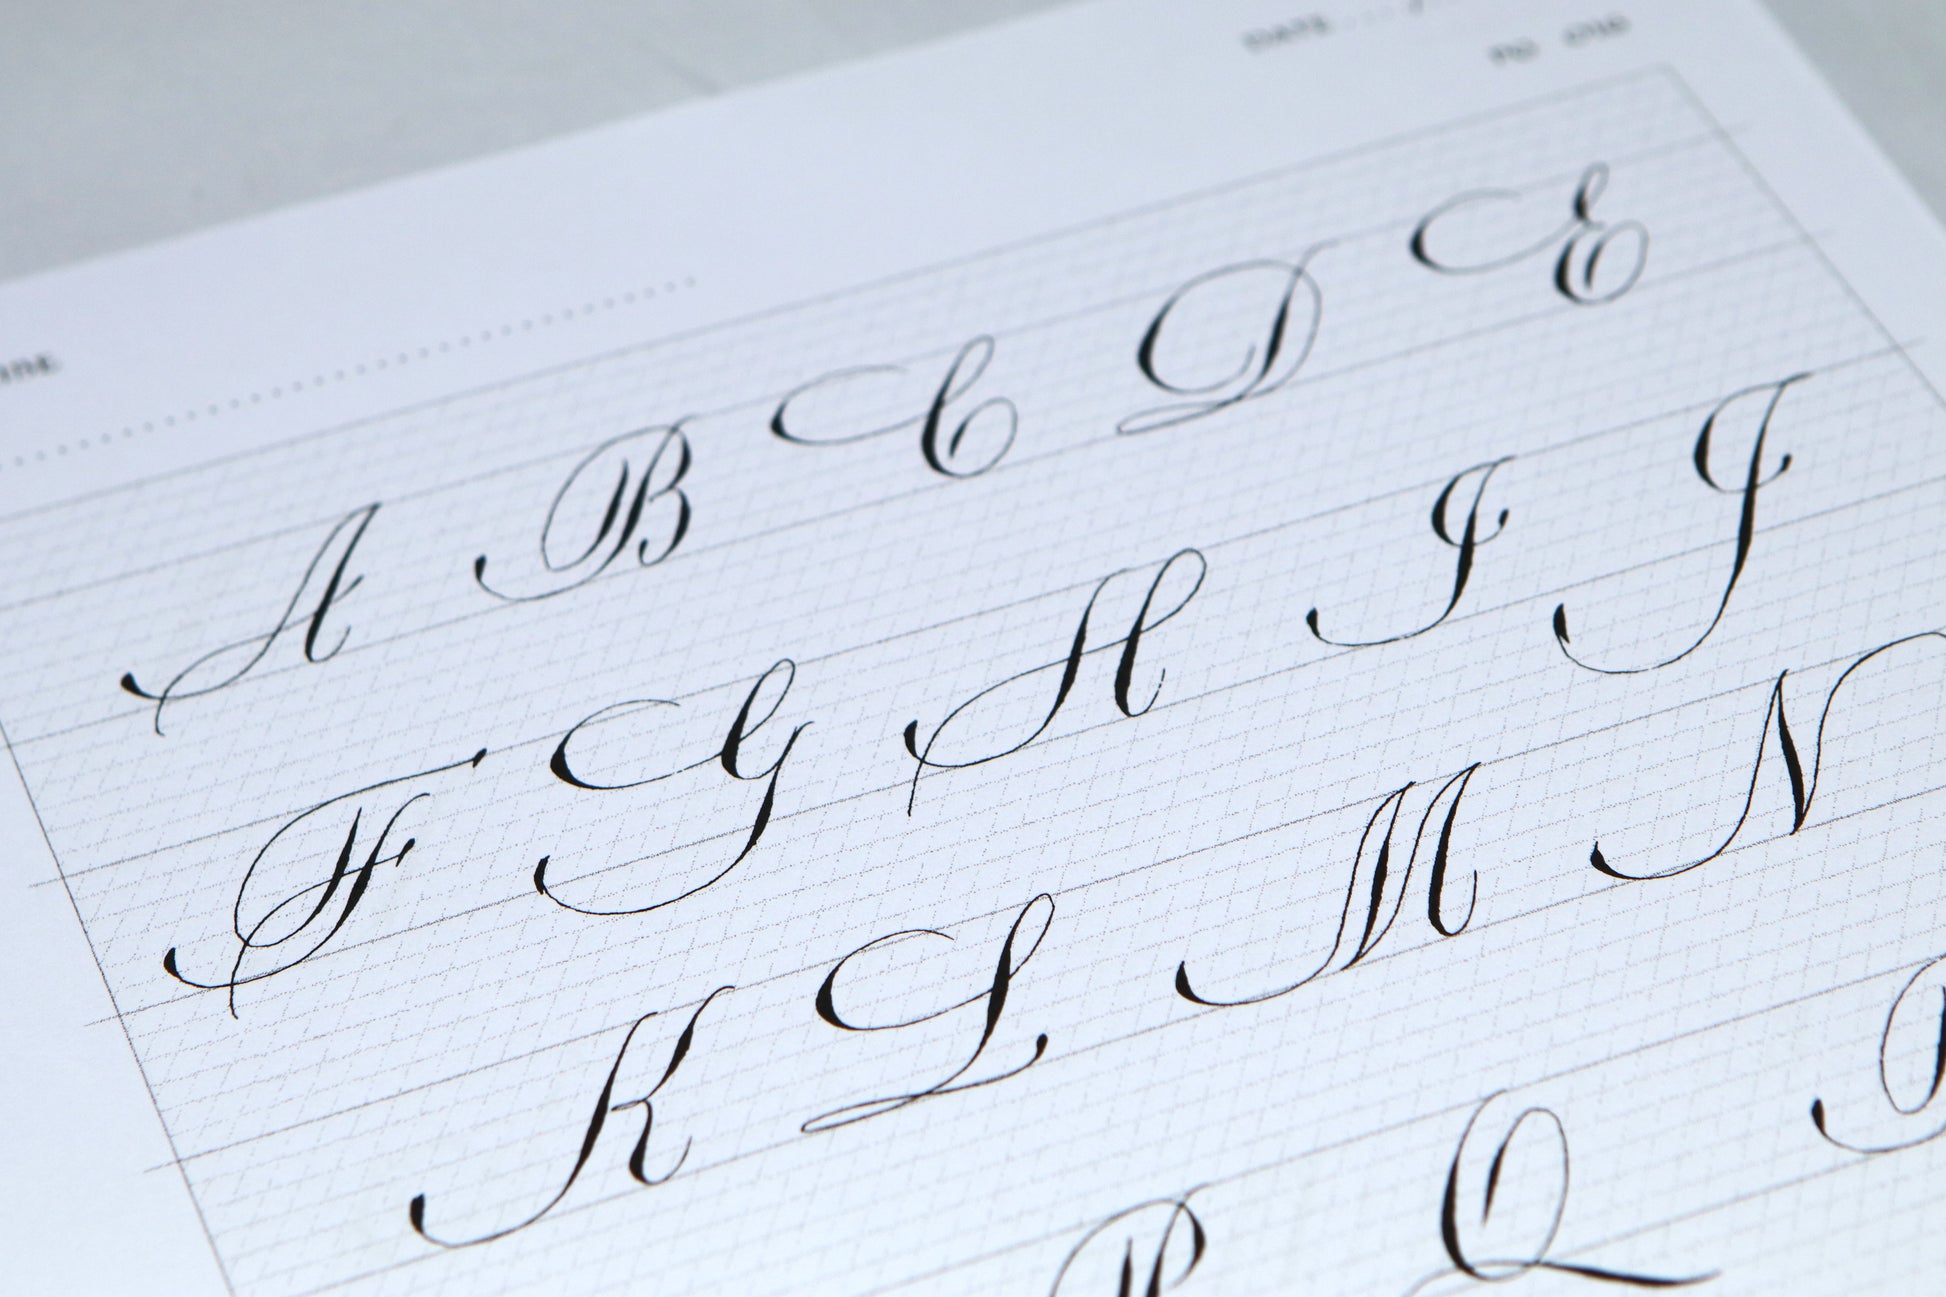 DATE
A B C D E
F G H I J
K L M N
P Q R